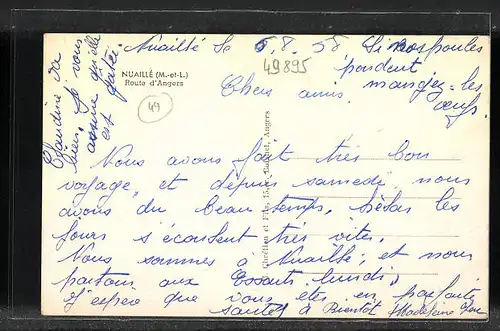 Nuaillé le 5.8.58
Si nos poules
pondent
mangez-les
œufs.
49895
NUAILLÉ (M.-et-L.)
Route d'Angers
49
Claudine va
bien. Je vous
assure qu'elle
est gatée.
Chers amis
Nous avons fait très bon
voyage, et depuis samedi nous
avons du beau temps, hélas les
jours s'écoulent très vites.
Nous sommes à Nuaillé, et nous
partons aux Essarts lundi,
J'espère que vous etes en parfaite
santée à Bientôt Madeleine
Chrétien et Fils, Angers